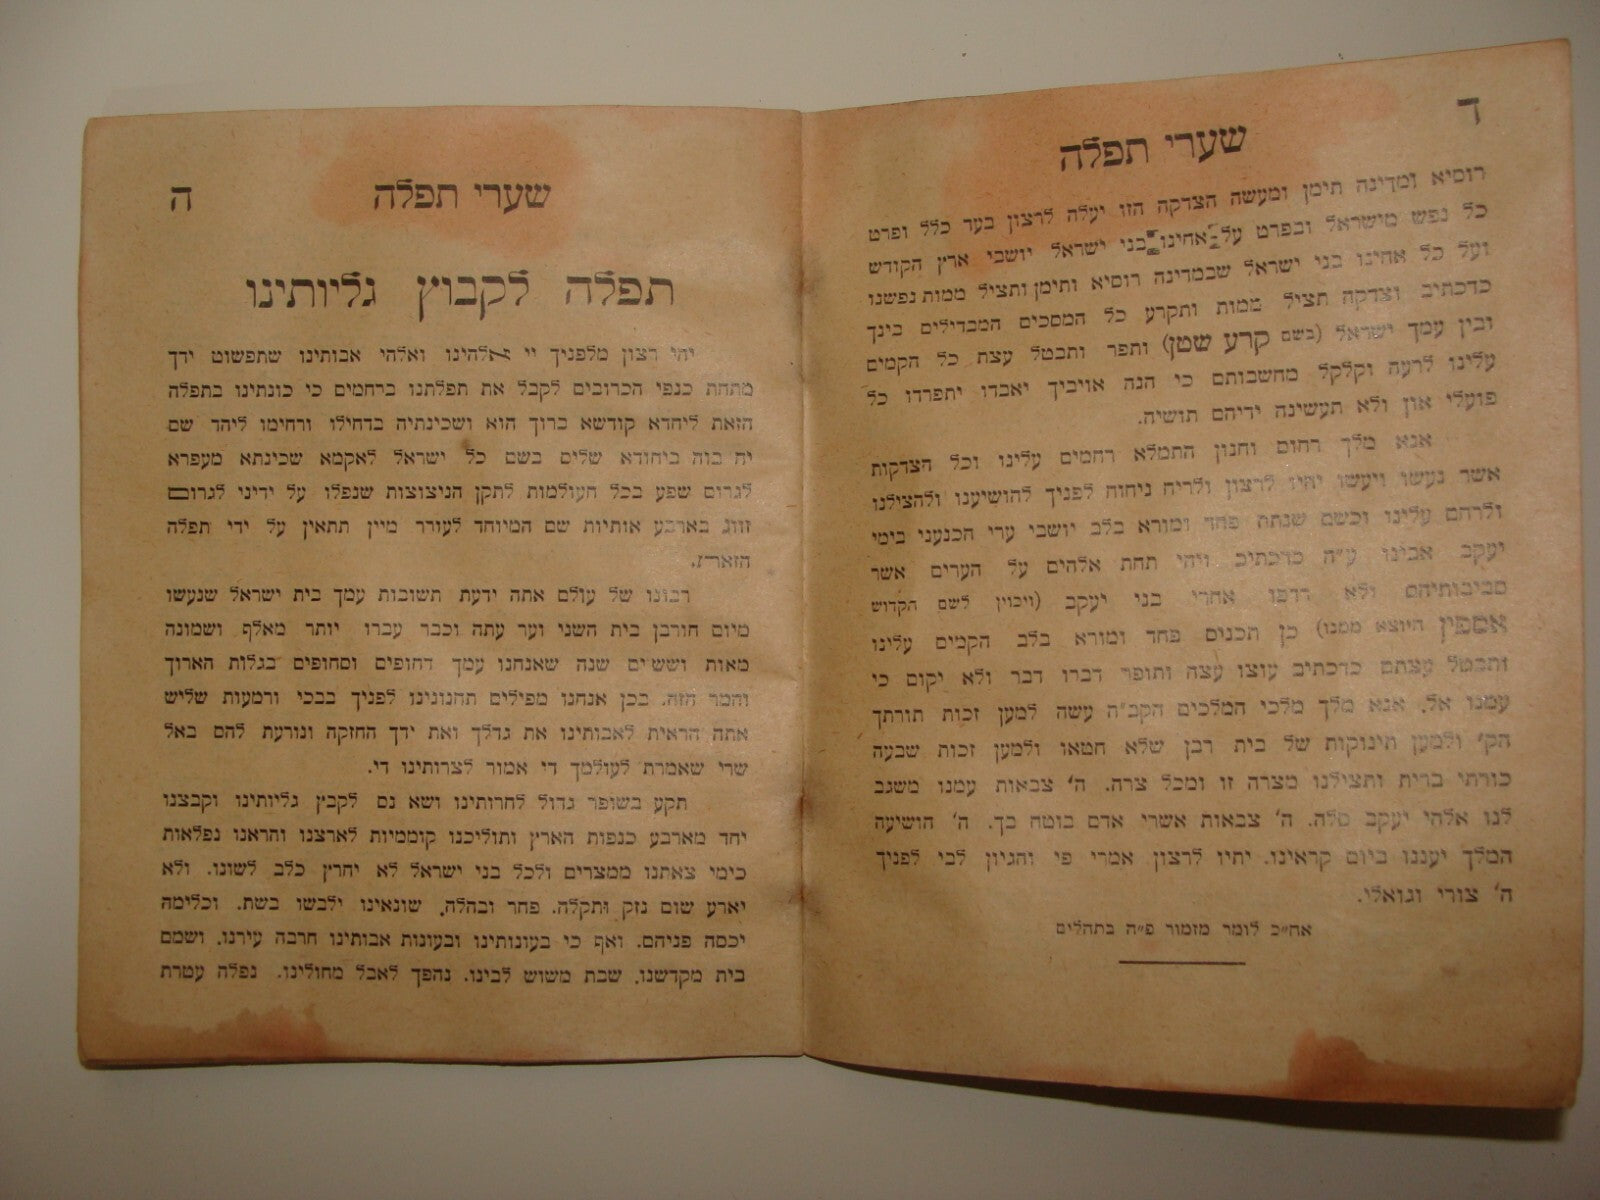 ד
שערי תפלה
רוסיא ומדינה תימן ומעשה הצדקה הזו יעלה לרצון בעד כלל ופרט
כל נפש מישראל ובפרט על אחינו בני ישראל יושבי ארץ הקודש
ועל כל אחינו בני ישראל שבמדינה רוסיא ותימן ותציל ממות נפשנו
כדכתיב וצדקה תציל ממות ותקרע כל המסכים המבדילים בינך
ובין עמך ישראל (בשם קרע שטן) ותפר ותבטל עצת כל הקמים
עלינו לרעה וקלקל מחשבותם כי הנה אויביך יאבדו יתפרדו כל
פועלי און ולא תעשינה ידיהם תושיה.
אנא מלך רחום וחנון התמלא רחמים עלינו וכל הצדקות
אשר נעשו ויעשו יהיו לרצון ולריח ניחוח לפניך להושיענו ולהצילנו
ולרחם עלינו וכשם שנתת פחד ומורא בלב יושבי ערי הכנעני בימי
יעקב אבינו ע״ה כדכתיב ויהי תחת אלהים על הערים אשר
סביבותיהם ולא רדפו אחרי בני יעקב (ויכוין לשם הקדוש
אספין היוצא ממנו) כן תכנים פחד ומורא בלב הקמים עלינו
ותבטל עצתם כדכתיב עוצו עצה ותופר דברו דבר ולא יקום כי
עמנו אל. אנא מלך מלכי המלכים הקב״ה עשה למען זכות תורתך
הק׳ ולמען תינוקות של בית רבן שלא חטאו ולמען זכות שבעה
כורתי ברית ותצילנו מצרה זו ומכל צרה. ה׳ צבאות עמנו משגב
לנו אלהי יעקב סלה. ה׳ צבאות אשרי אדם בוטח בך. ה׳ הושיעה
המלך יעננו ביום קראינו. יהיו לרצון אמרי פי והגיון לבי לפניך
ה׳ צורי וגואלי.
אח״כ לומר מזמור פ״ה בתהלים
שערי תפלה
ה
תפלה לקבוץ גליותינו
יהי רצון מלפניך יי אלהינו ואלהי אבותינו שתפשוט ידך
מתחת כנפי הכרובים לקבל את תפלתנו ברחמים כי כונתינו בתפלה
הזאת ליחדא קודשא כרוך הוא ושכינתיה בדחילו ורחימו ליחד שם
יה בוה ביחודא שלים בשם כל ישראל לאקמא שכינתא מעפרא
לגרום שפע בכל העולמות לתקן הניצוצות שנפלו על ידיני לגרום
זווג בארבע אותיות שם המיוחד לעורר מיין תתאין על ידי תפלה
הזאת.
רבונו של עולם אתה ידעת תשובות עמך בית ישראל שנעשו
מיום חורבן בית השני ועד עתה וכבר עברו יותר מאלף ושמונה
מאות וששים שנה שאנחנו עמך דחופים וסחופים בגלות הארוך
והמר הזה. בכן אנחנו מפילים תחנונינו לפניך בבכי ודמעות שליש
אתה הראית לאבותינו את גדלך ואת ידך החזקה ונודעת להם באל
שדי שאמרת לעולמך די אמור לצרותינו די.
תקע בשופר גדול לחרותינו ושא נס לקבץ גליותינו וקבצנו
יחד מארבע כנפות הארץ ותוליכנו קוממיות לארצנו והראנו נפלאות
כימי צאתנו ממצרים ולכל בני ישראל לא יחרץ כלב לשונו. ולא
יארע שום נזק ותקלה. פחד ובהלה. שונאינו ילבשו בשת. וכלימה
יכסה פניהם. ואף כי בעונותינו ובעונות אבותינו חרבה עירנו. ושמם
בית מקדשנו. שבת משוש לבינו. נהפך לאבל מחולינו. נפלה עטרת